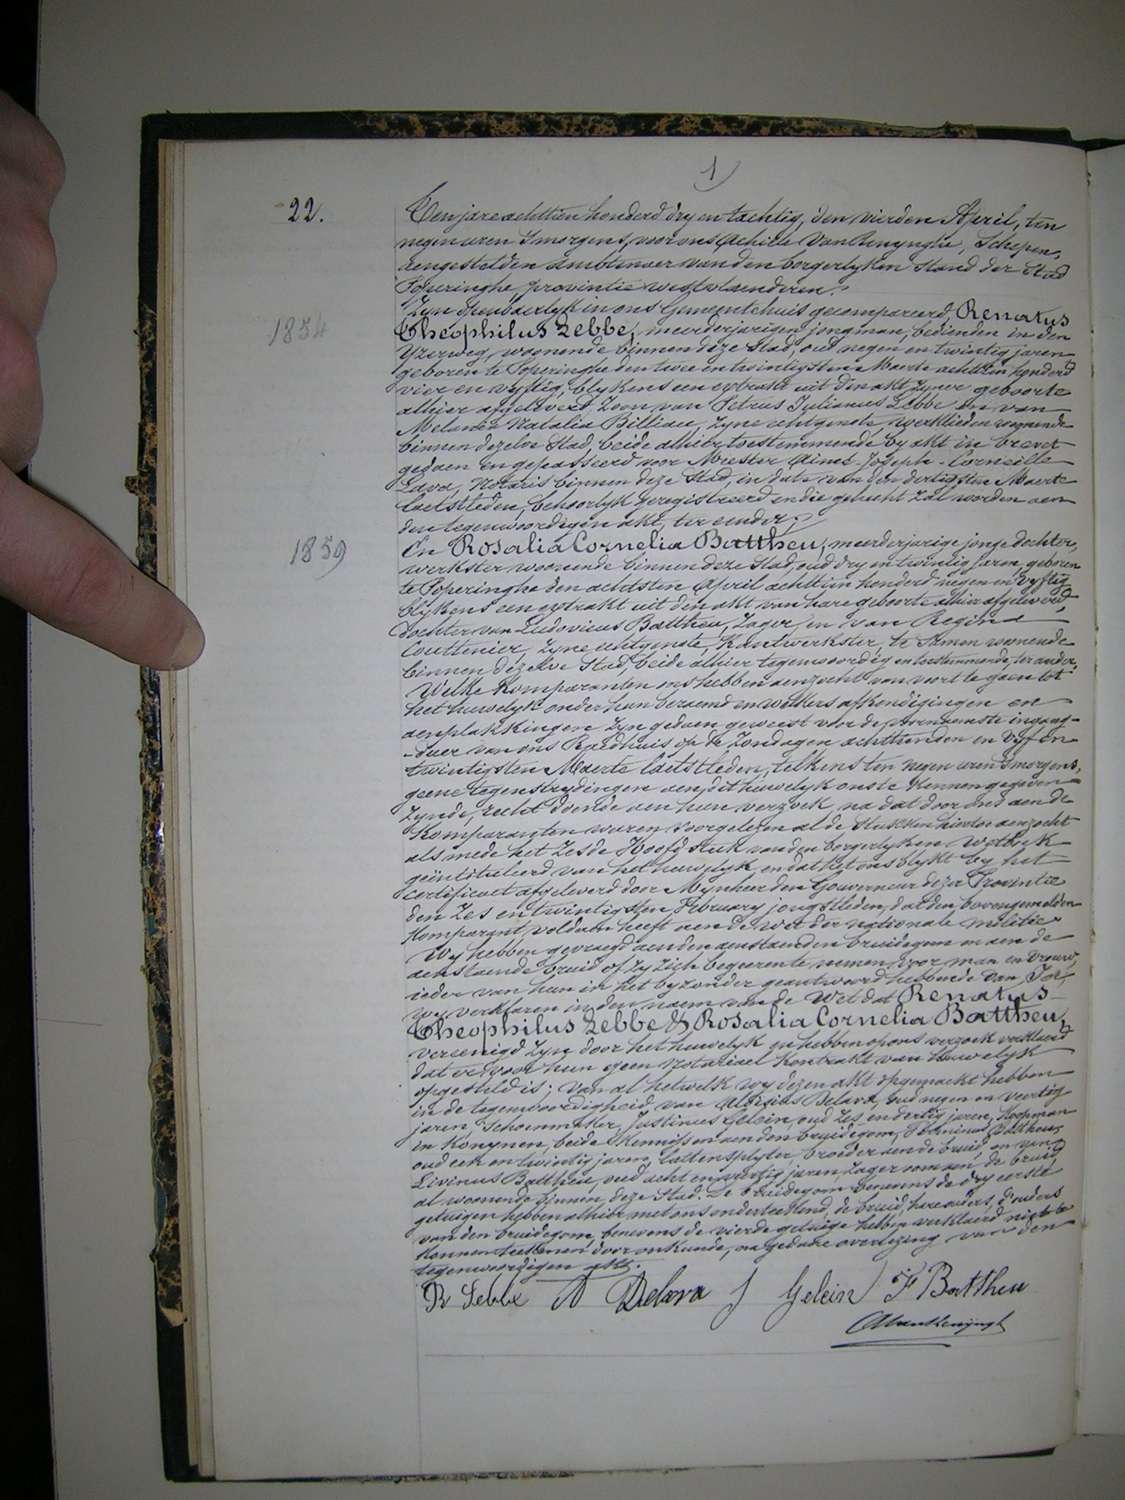 1
22.
Ten jare achttien honderd dry en tachtig, den vierden April, ten
negen uren s'morgens, voor ons Achille Van Renynghe, Schepen,
aengestelden ambtenaer van den borgerlyken stand der stad
Poperinghe, provintie westvlaenderen.
Zyn openbaerlyk in ons Gemeentehuis gecompareerd, Renatus
1854
Theophilus Lebbe, meerderjarigen jongman, bedienden in den
Yzerweg, woonende binnen deze stad, oud negen en twintig jaren
geboren te Poperinghe den twee en twintigsten Maerte achttien honderd
vier en vyftig, blykens een extrakt uit den akt zyner geboorte
alhier afgeleverd, zoon van Petrus Julianus Lebbe en van
Melania Natalia Billiau, zyne echtgenote, werklieden woonende
binnen dezelve stad, beide alhier toestemmende by akt in brevet
gedaen en gepasseerd voor Meester Aimé-Joseph-Corneille
Lava, Notaris binnen deze stad, in date van den dertigsten Maerte
laetstleden, behoorlyk geregistreerd en die gehecht zal worden aen
den tegenwoordigen akt, ter eender.
1859
En Rosalia Cornelia Battheu, meerderjarige jonge dochter,
werkster woonende binnen deze stad oud dry en twintig jaren, geboren
te Poperinghe den achtsten April achttien honderd negen en vyftig
blykens een extrakt uit den akt van hare geboorte alhier afgeleverd,
dochter van Ludovicus Battheu, Zager, en van Regina
Couttenier, zyne echtgenote, Kantwerkster, te samen woonende
binnen dezelve stad, beide alhier tegenwoordig en toestemmende, ter ander.
Welke komparanten ons hebben aenzocht van voort te gaen tot
het huwelyk onder hun beraemd en welkers afkondigingen en
aenplakkingen zyn gedaen geweest voor de voornaemste ingang-
-deur van ons Raedhuis op de Zondagen achttienden en vyf en
twintigsten Maerte laetstleden, telkens ten negen uren s'morgens,
geene tegenstrydingen aen dit huwelyk ons te kennen gegeven
zynde, recht doende aen hun verzoek na dat door ons aen de
komparanten waren voorgelezen al de stukken hiertoe aenzocht
als mede het Zesde Hoofdstuk van den borgerlyken wetboek
geïntituleerd van het huwelyk, en dat het ons blykt by het
certificaet afgeleverd door Mynheer den Gouverneur dezer Provintie
den zes en twintigsten February jongstleden, dat den bovengemelden
Komparant, voldaen heeft aen de wet der nationale militie
Wy hebben gevraegd aen den aenstaenden bruidegom en aen de
aenstaende bruid of zy zich begeerente nemen voor man en vrouw,
ieder van hun in het byzonder geantwoord hebbende van Ja;
wy verklaren in den naem van de Wet dat Renatus
Theophilus Lebbe & Rosalia Cornelia Battheu,
vereenigd zyn door het huwelyk en hebben op ons verzoek verklaerd
dat er voor hun geen Notariael kontrakt van huwelyk
opgesteld is; van al hetwelk wy dezen akt opgemaekt hebben
in de tegenwoordigheid van Aloisius Delava, oud negen en veertig
jaren, Schoenmaker, Justinus Gelein, oud zes en dertig jaren, Koopman
in konynen, beide kennissen aen den bruidegom, Battheu,
oud een en twintig jaren, lattensplyter, broeder aen de bruid, en van
Livinus Battheu, oud acht en jaren, Zager, oom aen de bruid
al woonende binnen deze stad. De bruidegom benevens de dry eerste
getuigen hebben alhier met ons onderteekend, de bruid, hare ouders, d'ouders
van den bruidegom, benevens de vierde getuige hebben verklaerd niet te
konnen teekenen door onkunde, na gedane overlezing van den
tegenwoordigen akt.
R Lebbe A Delava J Gelein F Battheu
AVanRenynghe